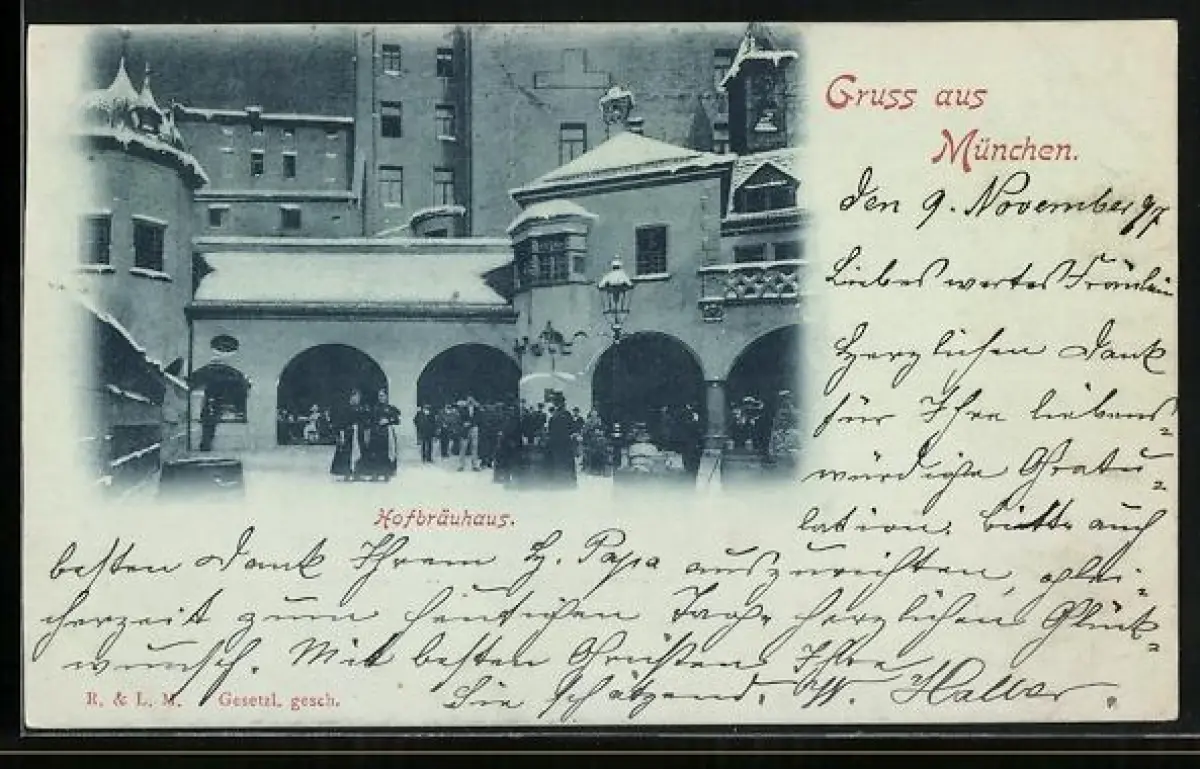 Gruss aus
München.
den 9. November 97
Liebes wertes Fräulein
Herzlichen Dank
für Ihre liebens-
würdige Gratu-
lation. Bitte auch
Hofbräuhaus.
besten Dank Ihrem H. Papa auszurichten, glei-
cherzeit zum heutigen Tage herzlichen Glück-
wunsch. Mit besten Grüssen Ihre
Sie schätzend. W. Haller
R. & L. M. Gesetzl. gesch.